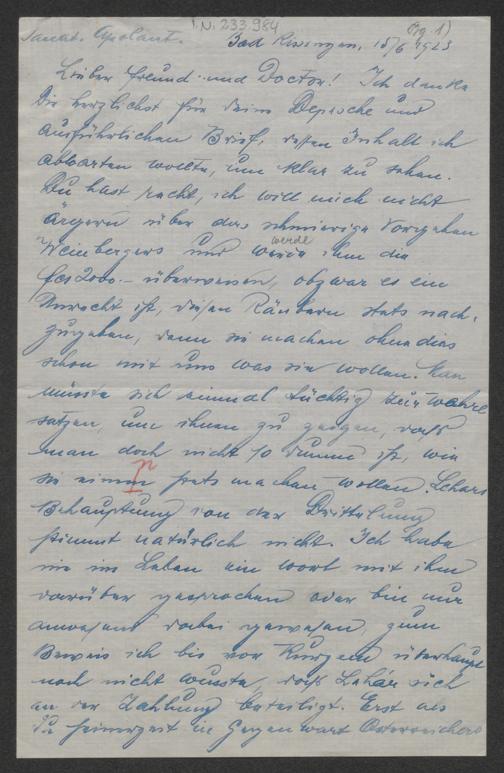 I.N. 233.984
Sanat. Apolant.
Bad Kissingen, 15/6 1923
Lieber Freund und Doctor! Ich danke
Dir herzlichst für Deine Depesche und
ausführlichen Brief, dessen Inhalt ich
abwarten wollte, um klar zu sehen.
Du hast recht, ich will mich nicht
ärgern über das schmierige Vorgehen
Weinbergers und werde ihm die
werde
frs 2000.– überweisen, obzwar es ein
Unrecht ist, diesen Räubern stets nach-
zugeben, denn sie machen ohne dies
schon mit uns was sie wollen. Man
müsste sich einmal tüchtig zur Wehre
setzen, um ihnen zu zeigen, dass
man doch nicht so dumm ist, wie
sie einen stets machen wollen. Lehárs
Behauptung von der Drittelung
stimmt natürlich nicht. Ich habe
nie im Leben ein Wort mit ihm
darüber gesprochen oder bin nur
anwesend dabei gewesen, zum
Beweis ich bis vor Kurzem überhaupt
noch nicht wusste, dass Lehár sich
an der Zahlung beteiligt. Erst als
Du seinerzeit in Gegenwart Österreichers